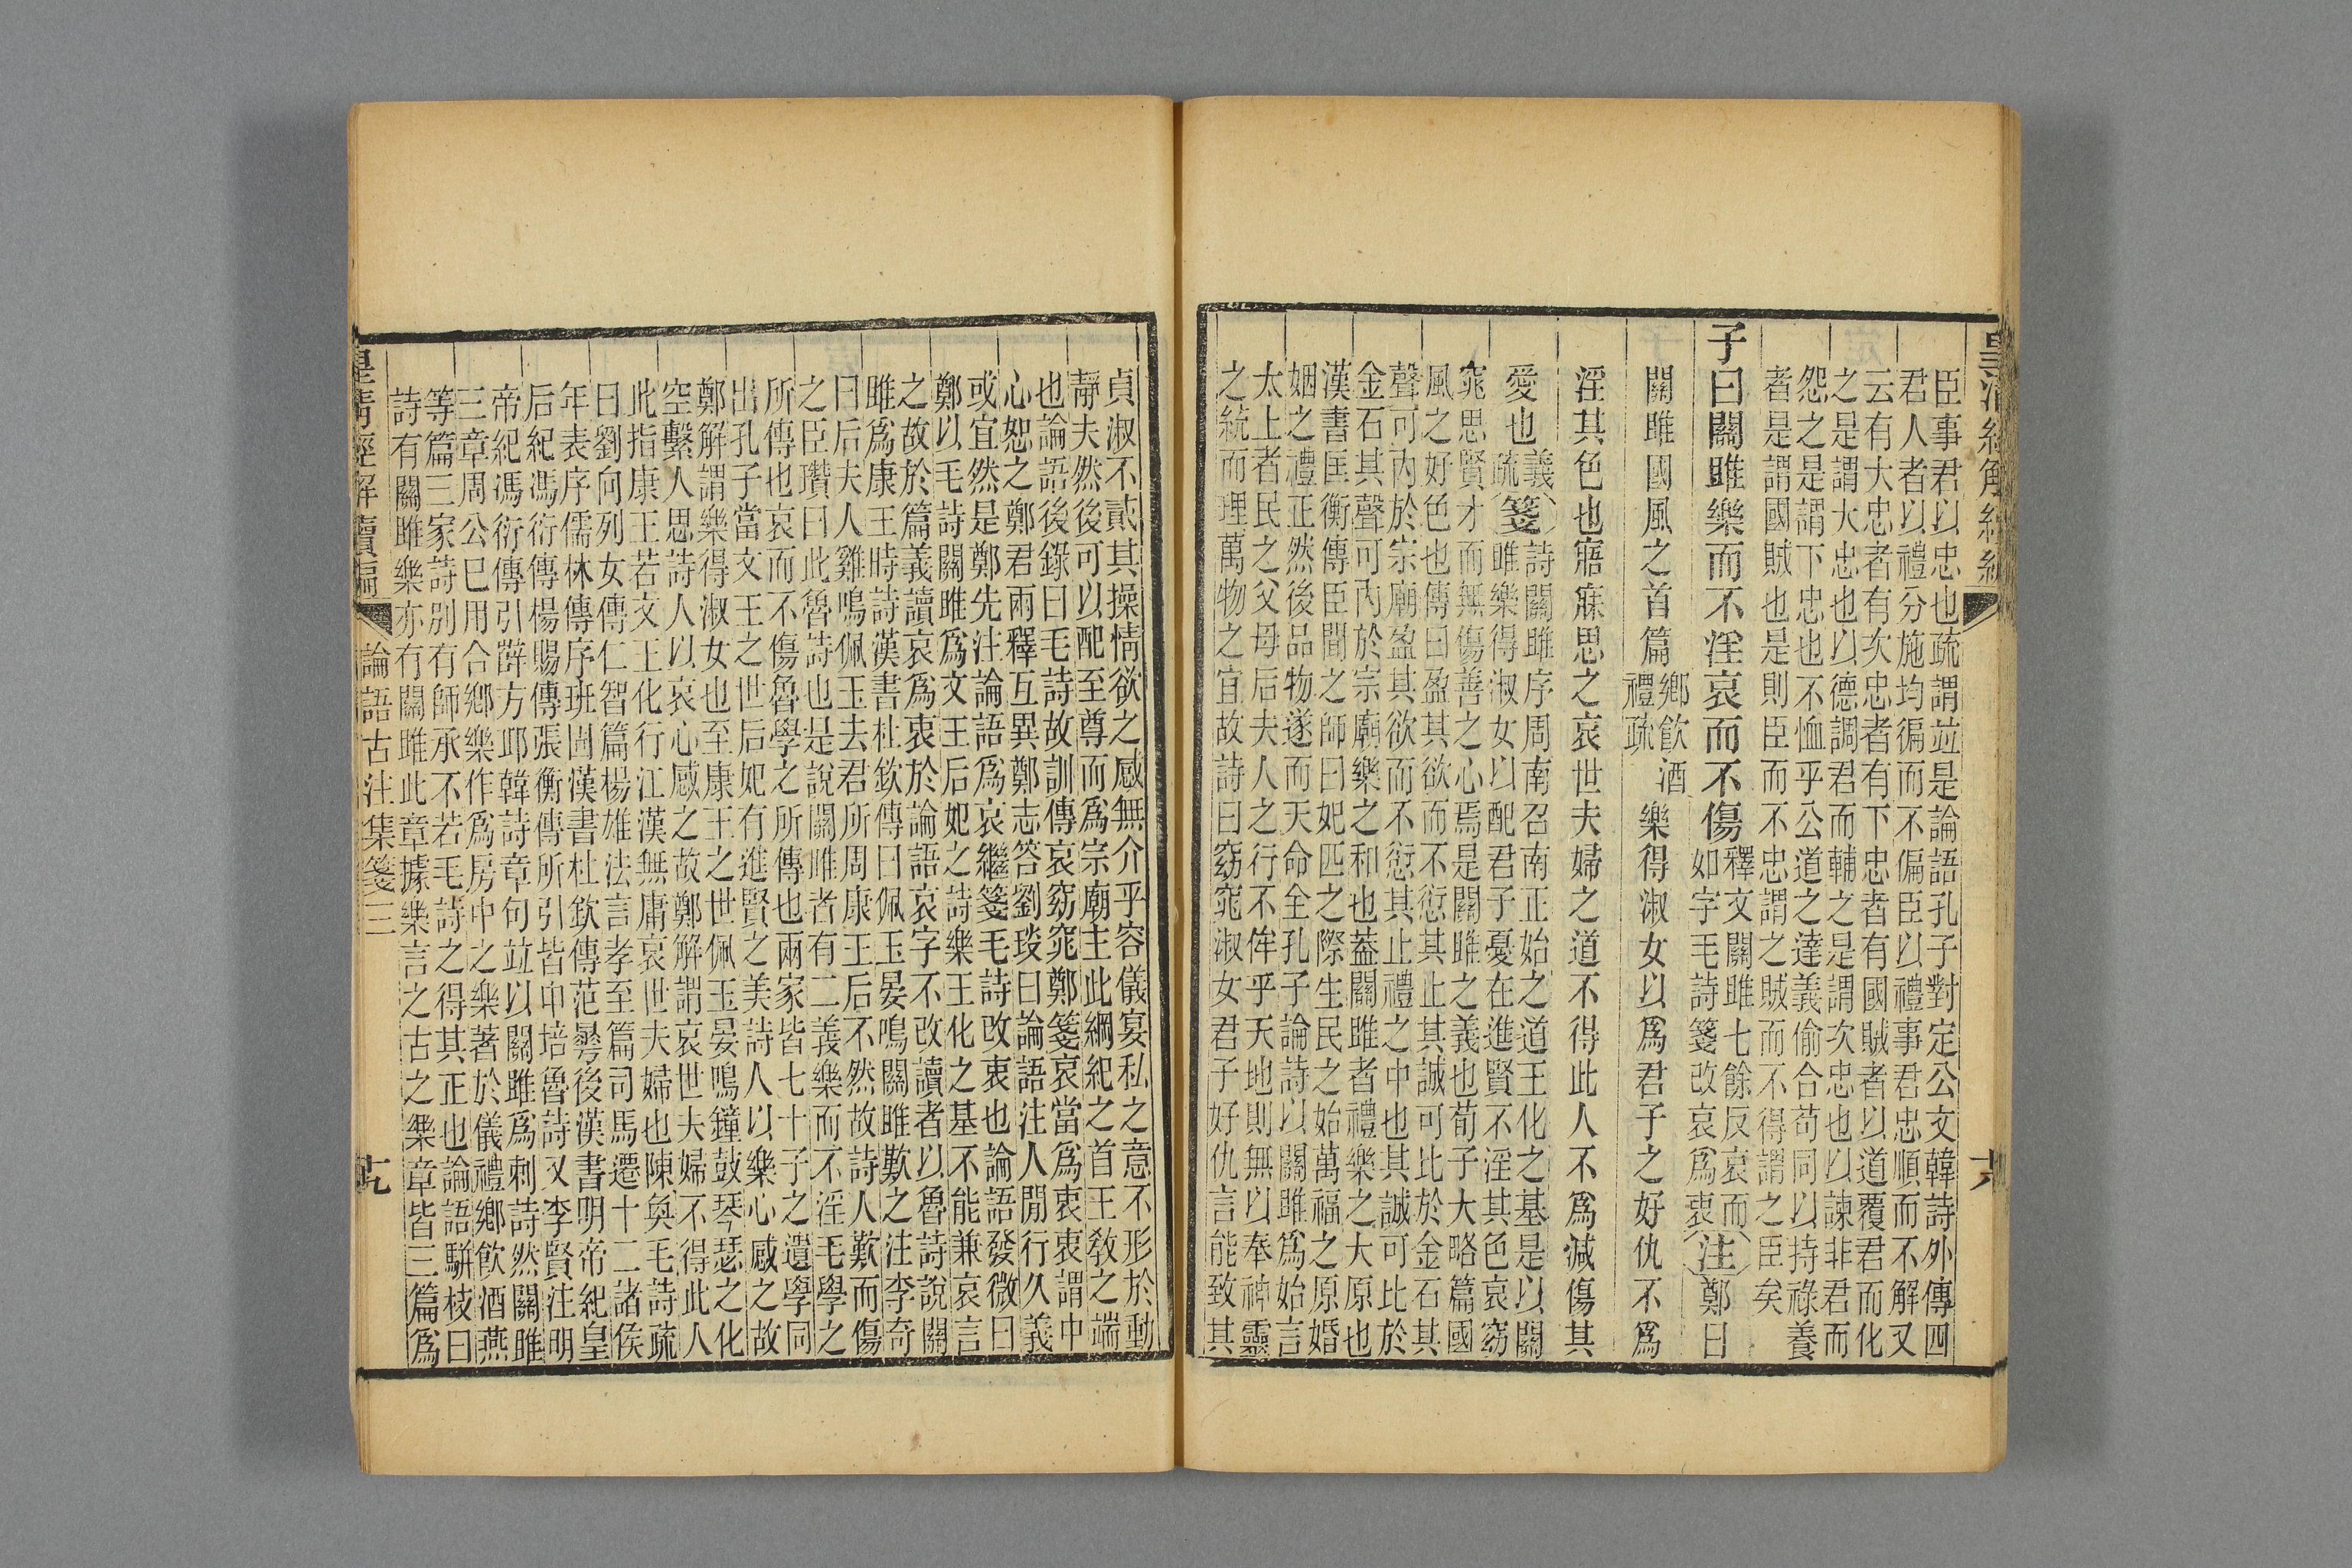 皇清經解續編
六
臣事君以忠也疏謂竝是論語孔子對定公文韓詩外傳四
君人者以禮分施均徧而不偏臣以禮事君忠順而不解又
云有大忠者有次忠者有下忠者有國賊者以道覆君而化
之是謂大忠也以德調君而輔之是謂次忠也以諫非君而
怨之是謂下忠也不恤乎公道之達義偷合苟同以持祿養
者是謂國賊也是則臣而不忠謂之賊而不得謂之臣矣
子曰關雎樂而不淫哀而不傷
釋文關雎七餘反哀而
如字毛詩箋改哀爲衷
注鄭曰
關雎國風之首篇
鄉飲酒
禮疏
樂得淑女以爲君子之好仇不爲
淫其色也寤寐思之哀世夫婦之道不得此人不爲減傷其
愛也
義
疏
箋
詩關雎序周南召南正始之道王化之基是以關
雎樂得淑女以配君子憂在進賢不淫其色哀窈
窕思賢才而無傷善之心焉是關雎之義也荀子大略篇國
風之好色也傳曰盈其欲而不愆其止其誠可比於金石其
聲可內於宗廟盈其欲而不愆其止禮之中也其誠可比於
金石其聲可內於宗廟樂之和也蓋關雎者禮樂之大原也
漢書匡衡傳臣聞之師曰妃匹之際生民之始萬福之原婚
姻之禮正然後品物遂而天命全孔子論詩以關雎爲始言
太上者民之父母后夫人之行不侔乎天地則無以奉神靈
之統而理萬物之宜故詩曰窈窕淑女君子好仇言能致其
貞淑不貳其操情欲之感無介乎容儀宴私之意不形於動
靜夫然後可以配至尊而爲宗廟主此綱紀之首王敎之端
也論語後錄曰毛詩故訓傳哀窈窕鄭箋哀當爲衷衷謂中
心恕之鄭君兩釋互異鄭志答劉琰曰論語注人閒行久義
或宜然是鄭先注論語爲哀繼箋毛詩改衷也論語發微曰
鄭以毛詩關雎爲文王后妃之詩樂王化之基不能兼哀言
之故於篇義讀哀爲衷於論語哀字不改讀者以魯詩說關
雎爲康王時詩漢書杜欽傳曰佩玉晏鳴關雎歎之注李奇
曰后夫人雞鳴佩玉去君所周康王后不然故詩人歎而傷
之臣瓚曰此魯詩也是說關雎者有二義樂而不淫毛學之
所傳也哀而不傷魯學之所傳也兩家皆七十子之遺學同
出孔子當文王之世后妃有進賢之美詩人以樂心感之故
鄭解謂樂得淑女也至康王之世佩玉晏鳴鐘鼓琴瑟之化
空繫人思詩人以哀心感之故鄭解謂哀世夫婦不得此人
此指康王若文王化行江漢無庸哀世夫婦也陳奐毛詩疏
曰劉向列女傳仁智篇楊雄法言孝至篇司馬遷十二諸侯
年表序儒林傳序班固漢書杜欽傳范曅後漢書明帝紀皇
后紀馮衍傳楊賜傳張衡傳所引皆申培魯詩又李賢注明
帝紀馮衍傳引薛方邱韓詩章句竝以關雎爲刺詩然關雎
三章周公巳用合鄉樂作爲房中之樂著於儀禮鄉飲酒燕
等篇三家詩別有師承不若毛詩之得其正也論語駢枝曰
詩有關雎樂亦有關雎此章據樂言之古之樂章皆三篇爲
皇清經解續編
論語古注集箋三